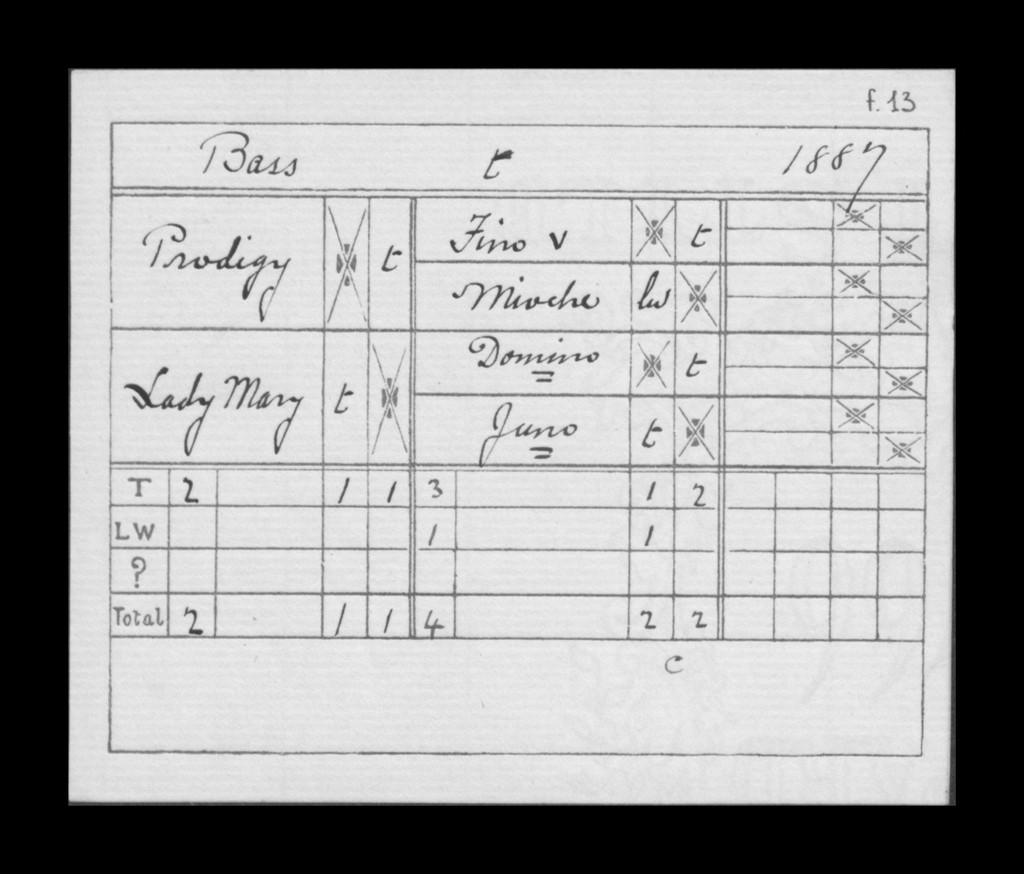 f. 13
Bass t 1887
Prodigy t
Fino v t
Mioche lw
Lady Mary t
Domino t
Juno t
T 2 1 1 3 1 2
LW 1 1
?
Total 2 1 1 4 2 2
C